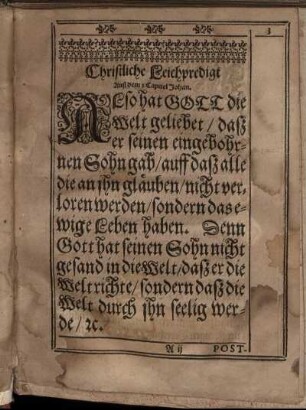 3
Christliche Leichpredigt
Auß dem 3 Capittel Johan.
ALso hat GOTT die
Welt geliebet / daß
er seinen eingebohr-
nen Sohn gab / auff daß alle
die an ihn gläuben / nicht ver-
loren werden / sondern das e-
wige Leben haben. Denn
Gott hat seinen Sohn nicht
gesand in die Welt / daß er die
Welt richte / sondern daß die
Welt durch ihn seelig wer-
de / ꝛc.
A ij POST.